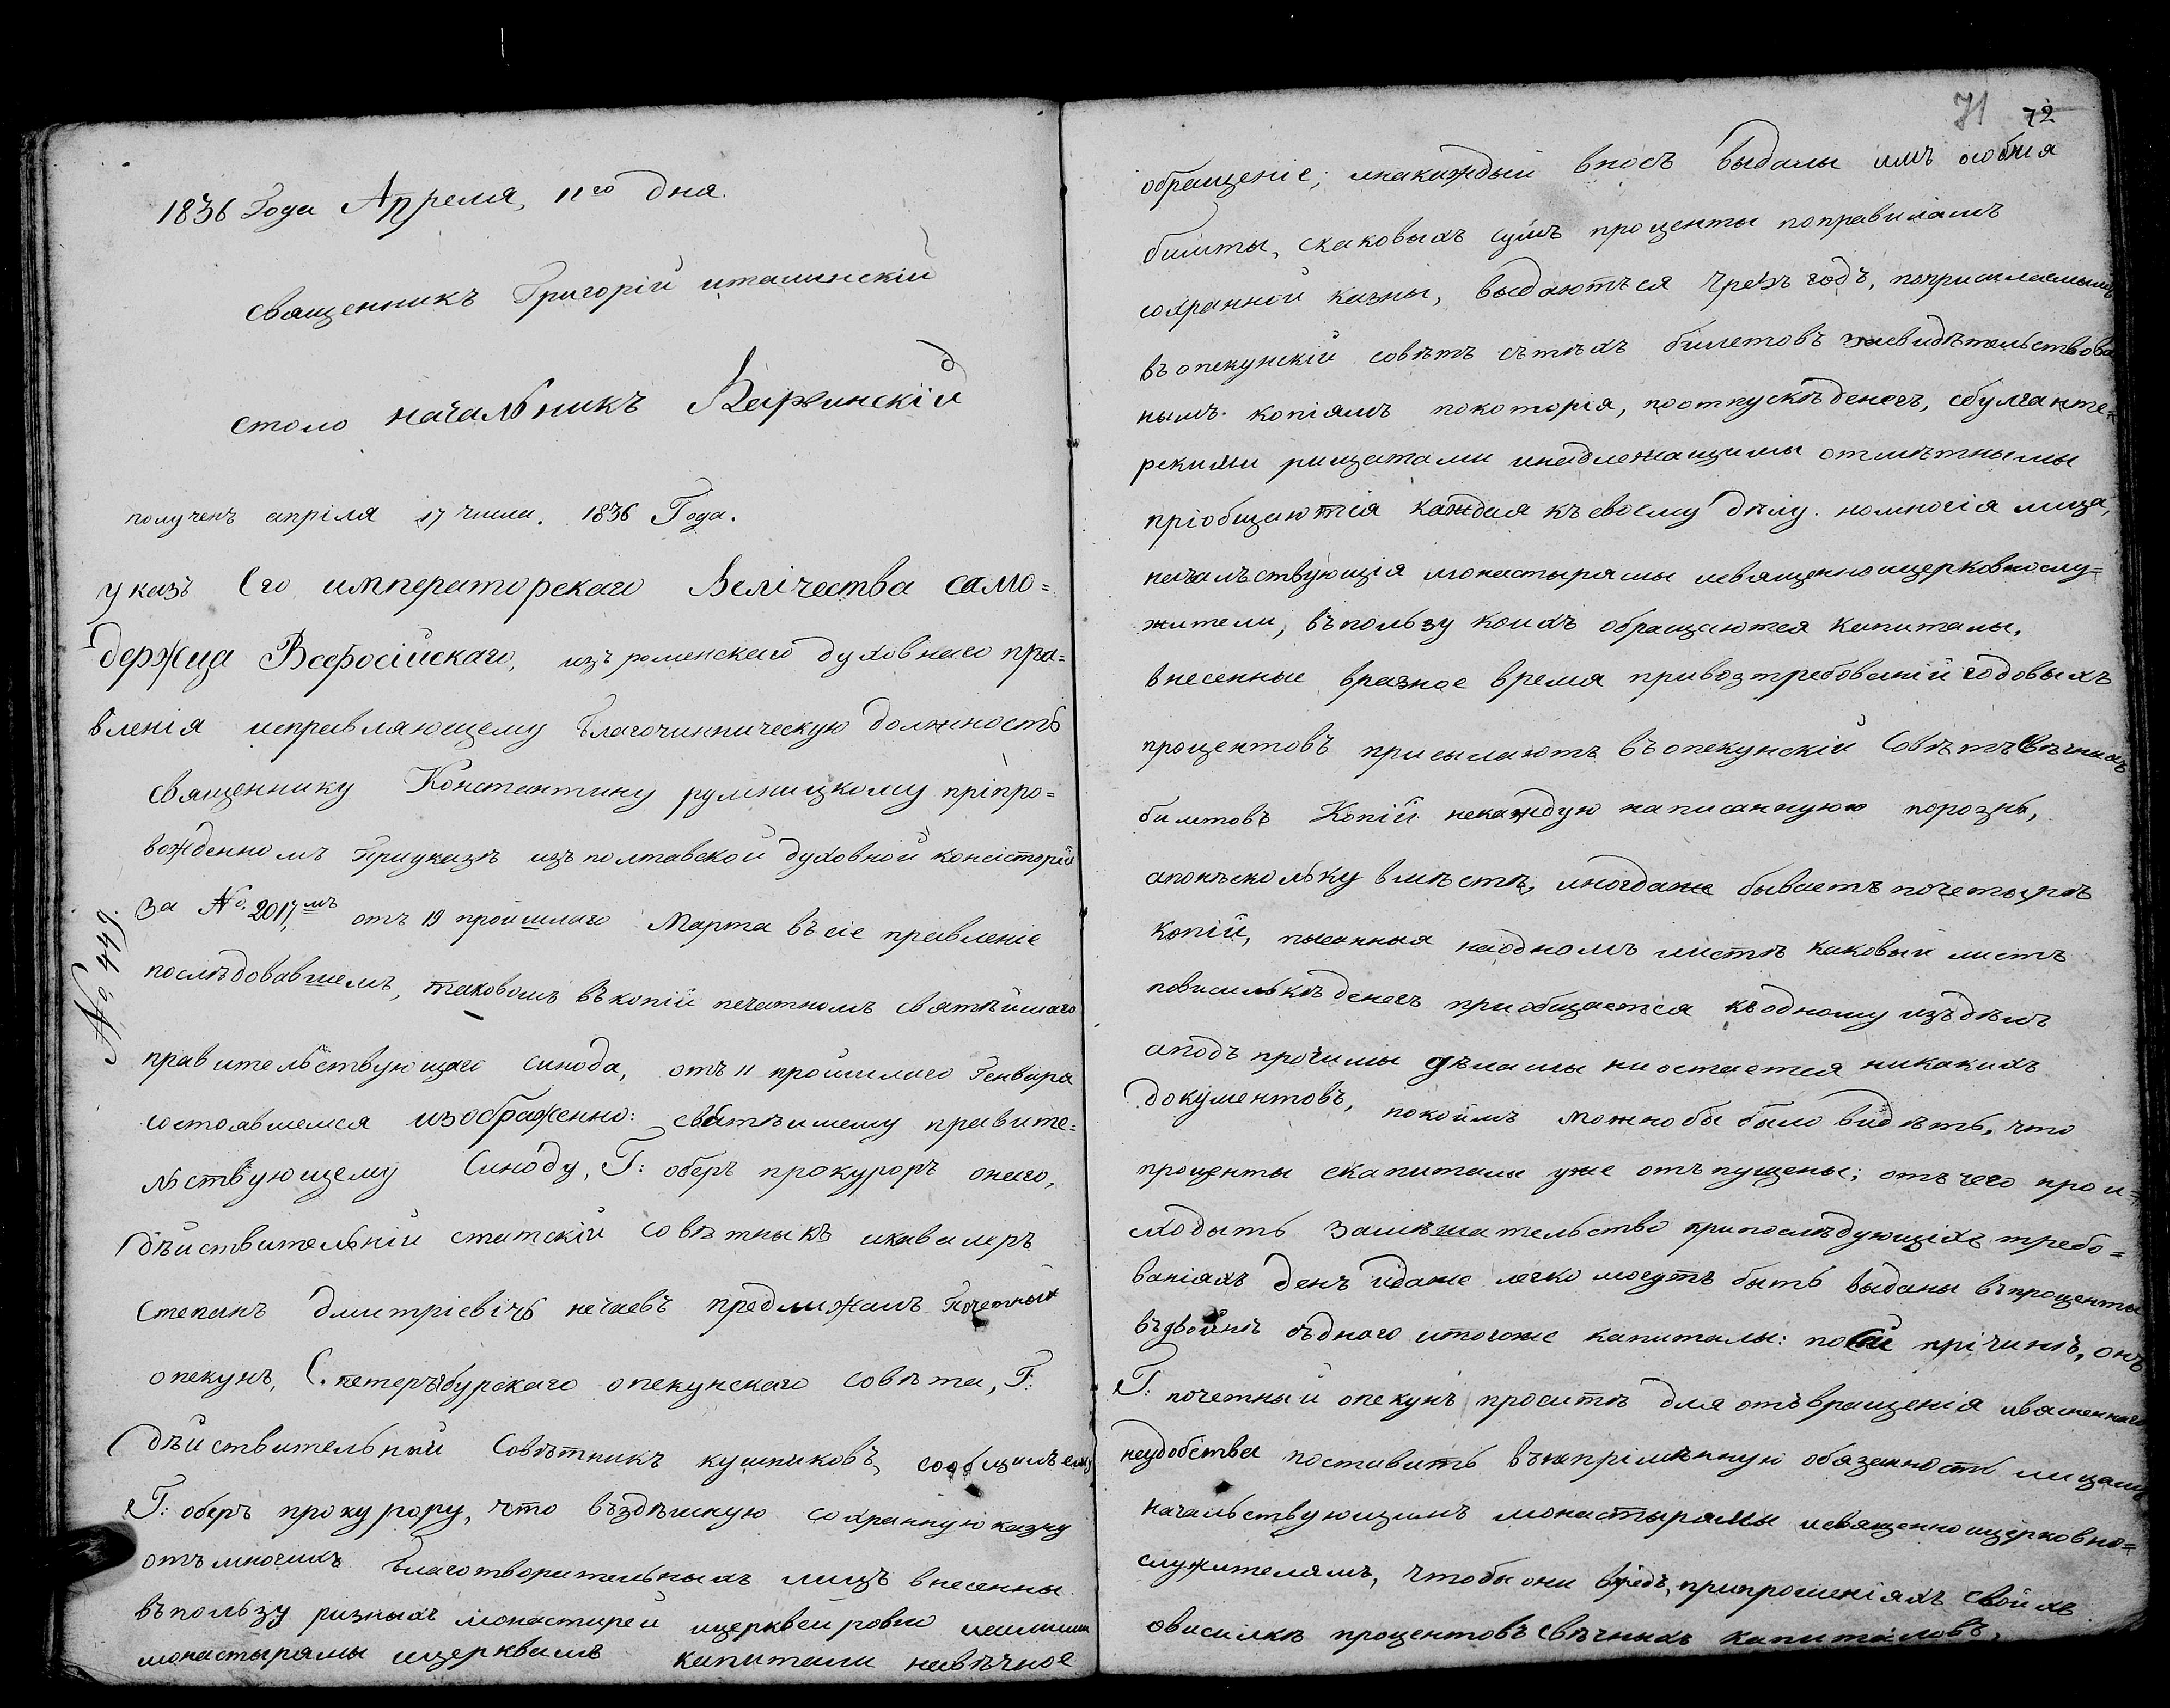 1836 Года Апреля, 11го дня.
священникъ Григорій италинскій
столо начальникъ
полученъ апріля 17 числа. 1836 Года.
указъ Его императорскаго Велічества само=
держца Всеросійскаго, изъ роменскаго духовнаго пра=
вленія исправляющему благочинническую должность
священнику Константину румницкому пріпро=
вожденномъ Приуказѣ изъ полтавской духовной консісторіи
За №. 2017,мъ отъ 19 пройшлаго Марта въ сіе правленіе
№. 449.
послѣдовавшемъ, таковомъ въ копіи печатномъ святѣйшаго
правительствующаго синода, отъ 11 пройшлаго Генвара
состоявшемся изображенно: святѣишему правите=
льствующему Синоду, Г: оберъ прокуроръ онаго,
дѣиствительній статскій совѣтныкъ икавалеръ
Степанъ дмитріевічь нечаевъ предлижалъ Почетный
опекунъ, С. петеръбурскаго опекунскаго совѣта, Г:
дѣйствительный Совѣтникъ кушниковъ, сообщилъ ему
Г: оберъ прокурору, что въздѣшную сохранную казну
отъ многихъ благотворительныхъ лицъ внесенны
въ пользу разныхъ монастирей ицерквей ровно исамими
монастырямы ицерквамъ капитали навѣчное
71 72
обращеніе; инакаждый вносъ выданы имъ особыя
билеты, скаковыхъ сумъ проценты поправиламъ
сохранной казны, выдаютъся чрезъ годъ, поприсилаемымъ
въ опекунскій совѣтъ сътѣхъ билетовъ засвидѣтельствова
нымъ копіямъ покоторія, поотпускѣ денегъ, сбулганте=
рскими рищотами инадлежащимы отмѣтнымы
пріобщаються каждая къ своему дѣлу. номногія лица,
началъствующія монастырямы исвященноицерковнослу=
жители, въ пользу коихъ обращаются капиталы,
внесенные вразное время привозтребованіи годовыхъ
процентовъ присылаютъ въ опекунскій Совѣтъ свѣчныхъ
билетовъ Копіи некаждую написанную порознь,
апонѣскольку вмѣстѣ, иногдаже бываетъ почетырѣ
копій, писанныя наодномъ листѣ каковый листъ
повисилькѣ денегъ приобщаетъся къодному изъдѣлъ
аподъ прочимы дѣламы ниостается никакихъ
документовъ, покоимъ можнобы было видѣть, что
проценты скапитала уже отъпущены; отъ чего прои=
сходыть замѣшательство припослѣдующіхъ требо=
ваніяхъ денъ идаже легко могутъ быть выданы въпроценты
въдвойнѣ съдного итогоже капиталы: посей прічинѣ, онъ
Г: почетный опекунъ проситъ для отъвращенія изясненнаго
неудобства поставить въ непрімѣнную обязанность лицамъ
начальствующимъ монастырямы исвященноицерковно=
служителямъ, чтобы они впредь, припрошеніяхъ своихъ
овисилкѣ процентовъ свѣчныхъ капиталовъ,